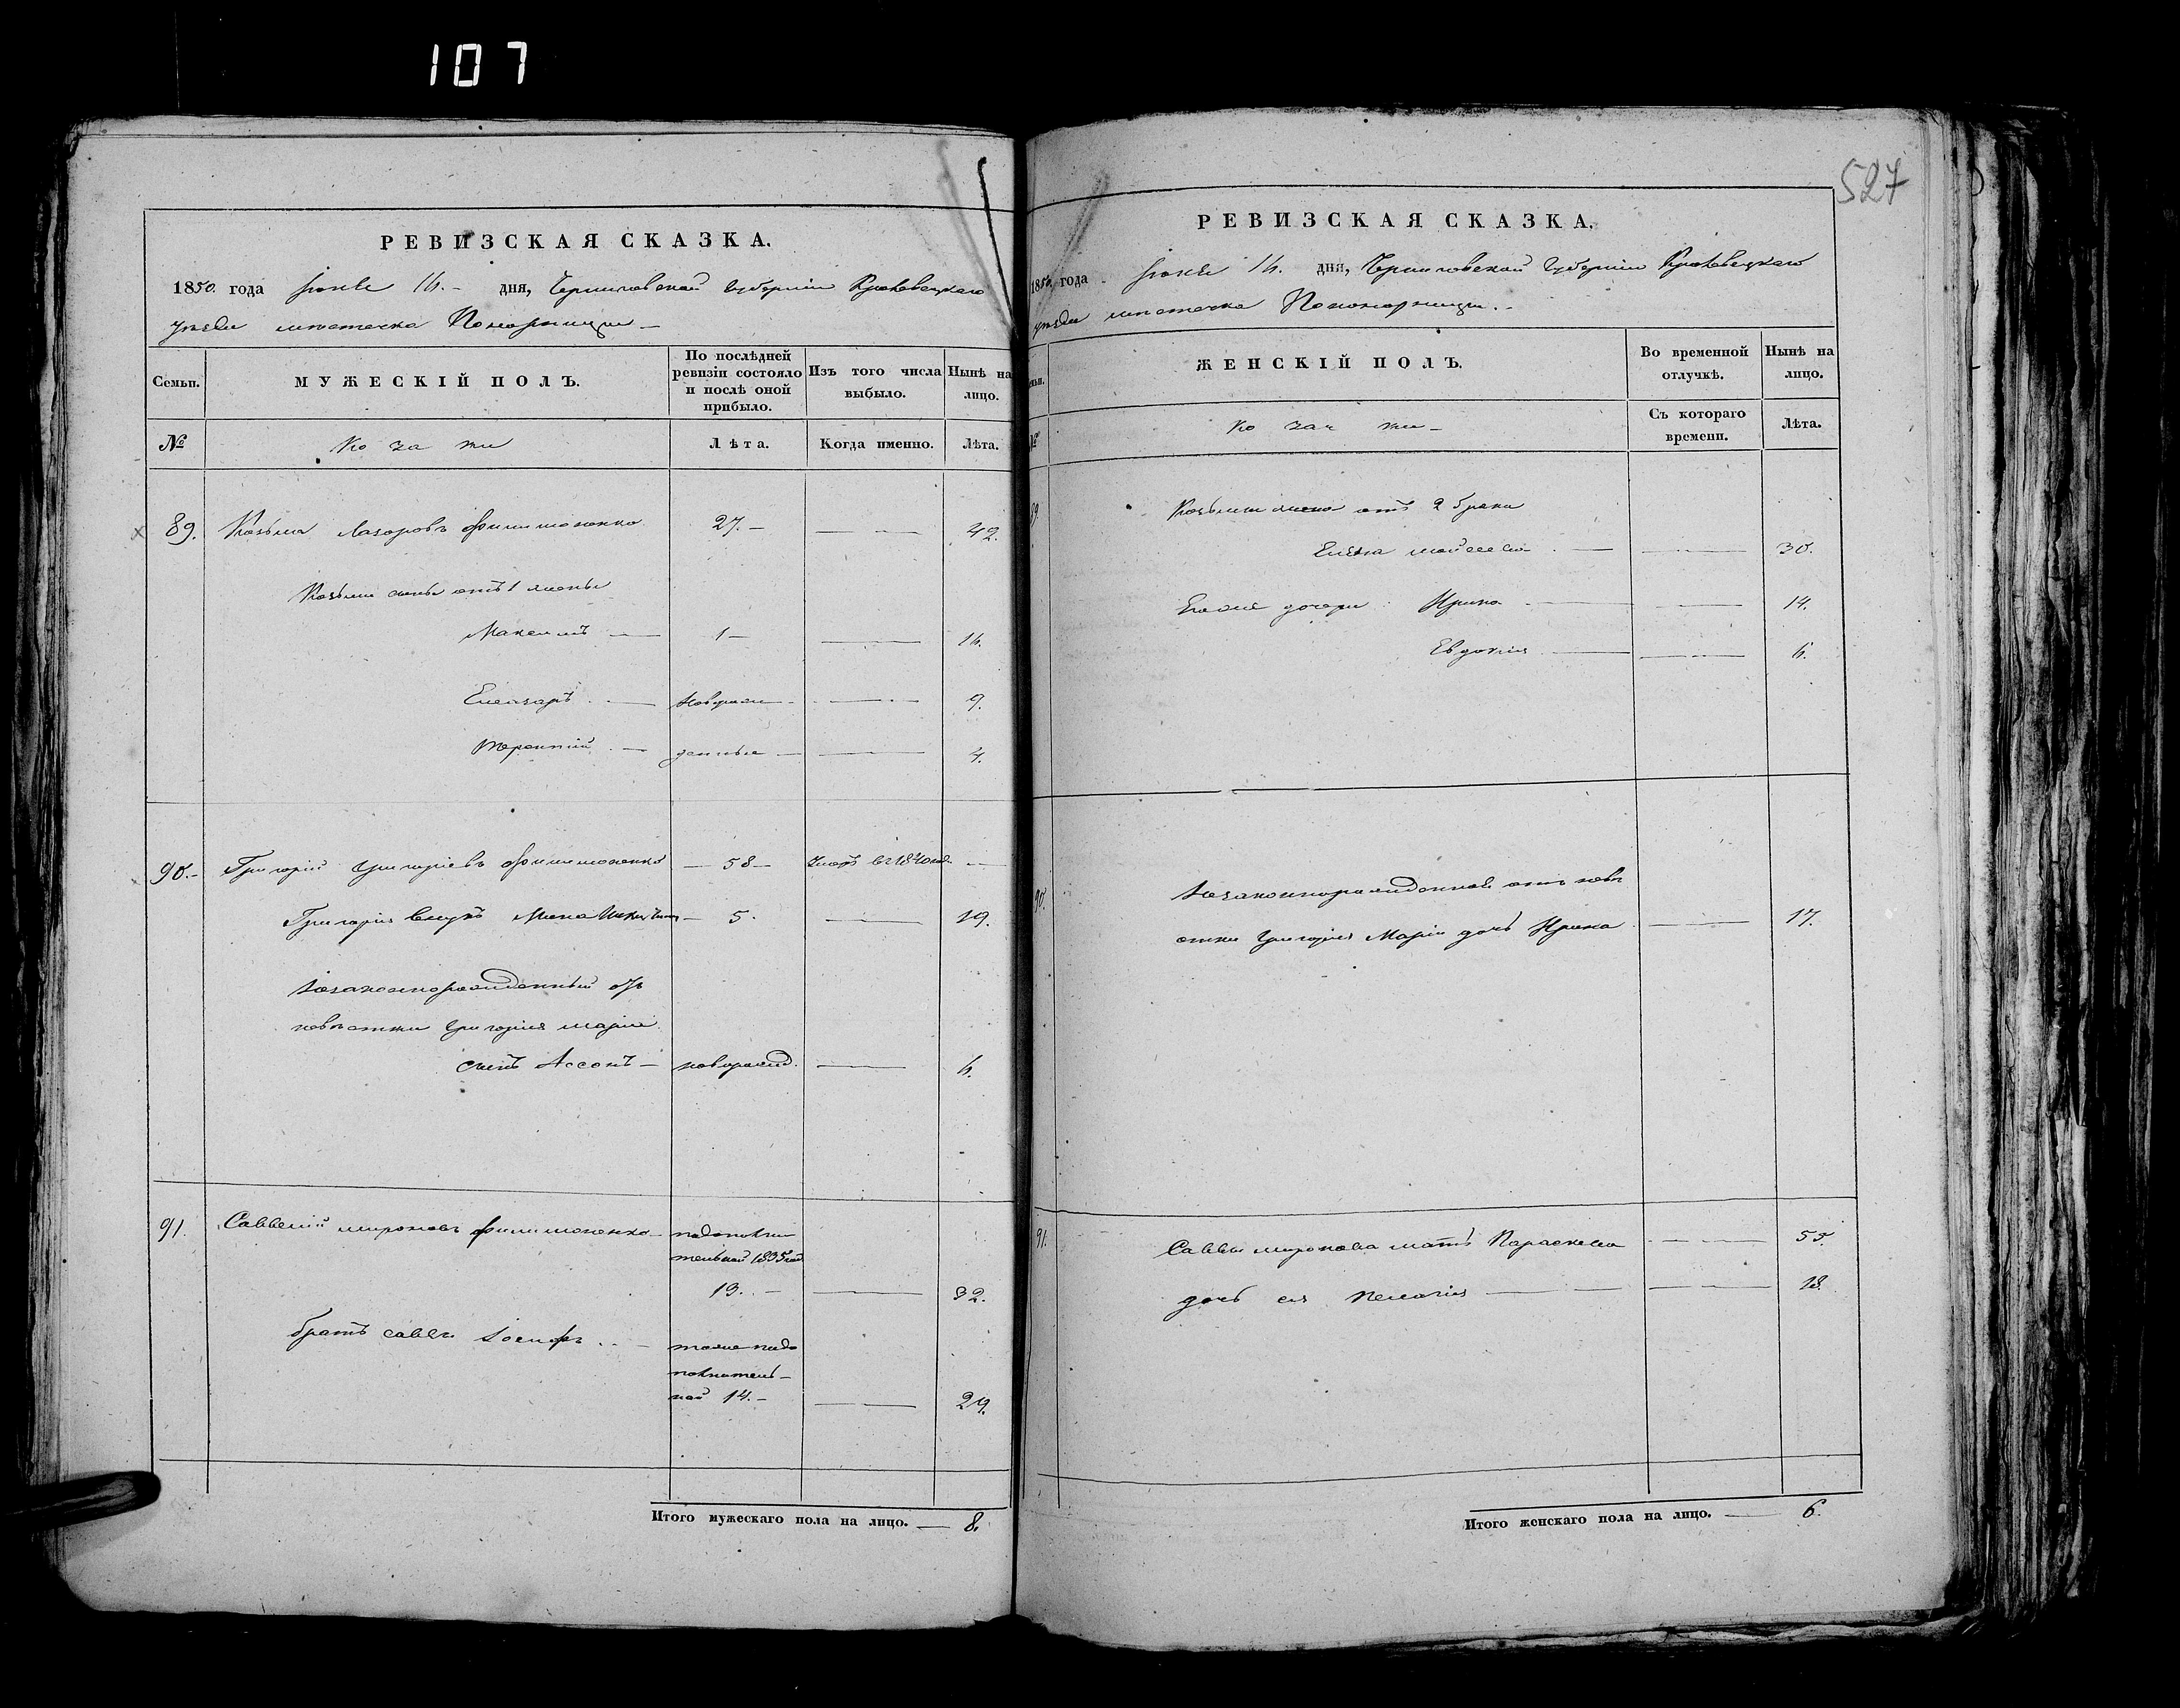 107
РЕВИЗСКАЯ СКАЗКА.
1850. года Іюня 16. дня, Черниговской губерніи Кролевецкаго
уѣзда мѣстечка Понорницы
Семьи.
МУЖЕСКІЙ ПОЛЪ.
По послѣдней ревизіи состояло и послѣ оной прибыло.
Изъ того числа выбыло.
Нынѣ на лицо.
№
Козаки
Лѣта.
Когда именно.
Лѣта.
89. Козьма Лазаровъ Филимоненко 27. 42.
Козьмы сыны отъ 1 жены
Максимъ 1 16.
Елеазаръ новорож 9.
Терентій денные 4.
90. Григорій Григоріевъ Филимоненко 58 Умеръ въ 1840 год.
Григорія внукъ Мина 5. 19.
Незаконнорожденный отъ
невѣстки Григорія Маріи
сынъ новорожд. 6.
91. Савелій Мироновъ Филимоненко
1835 год
13. 32.
братъ Саввы Іосифъ
тоже
14. 29.
Итого мужескаго пола на лицо. 8.
527
РЕВИЗСКАЯ СКАЗКА.
1850 года Іюня 16. дня, Черниговской губерніи Кролевецкаго
уѣзда мѣстечка Понорницы.
ЖЕНСКІЙ ПОЛЪ.
Во временной отлучкѣ.
Нынѣ на лицо.
№
Козачки
Съ котораго времени.
Лѣта.
89. Козьмы жена отъ 2 брака
Елена 30.
дочери Ирина 14.
Евдокія 6.
90. Незаконнорожденная отъ невѣ
стки Григорія Маріи дочь Ирина 17.
91. Саввы Миронова мать Параскева 55.
дочь ея Пелагія 18.
Итого женскаго пола на лицо. 6.